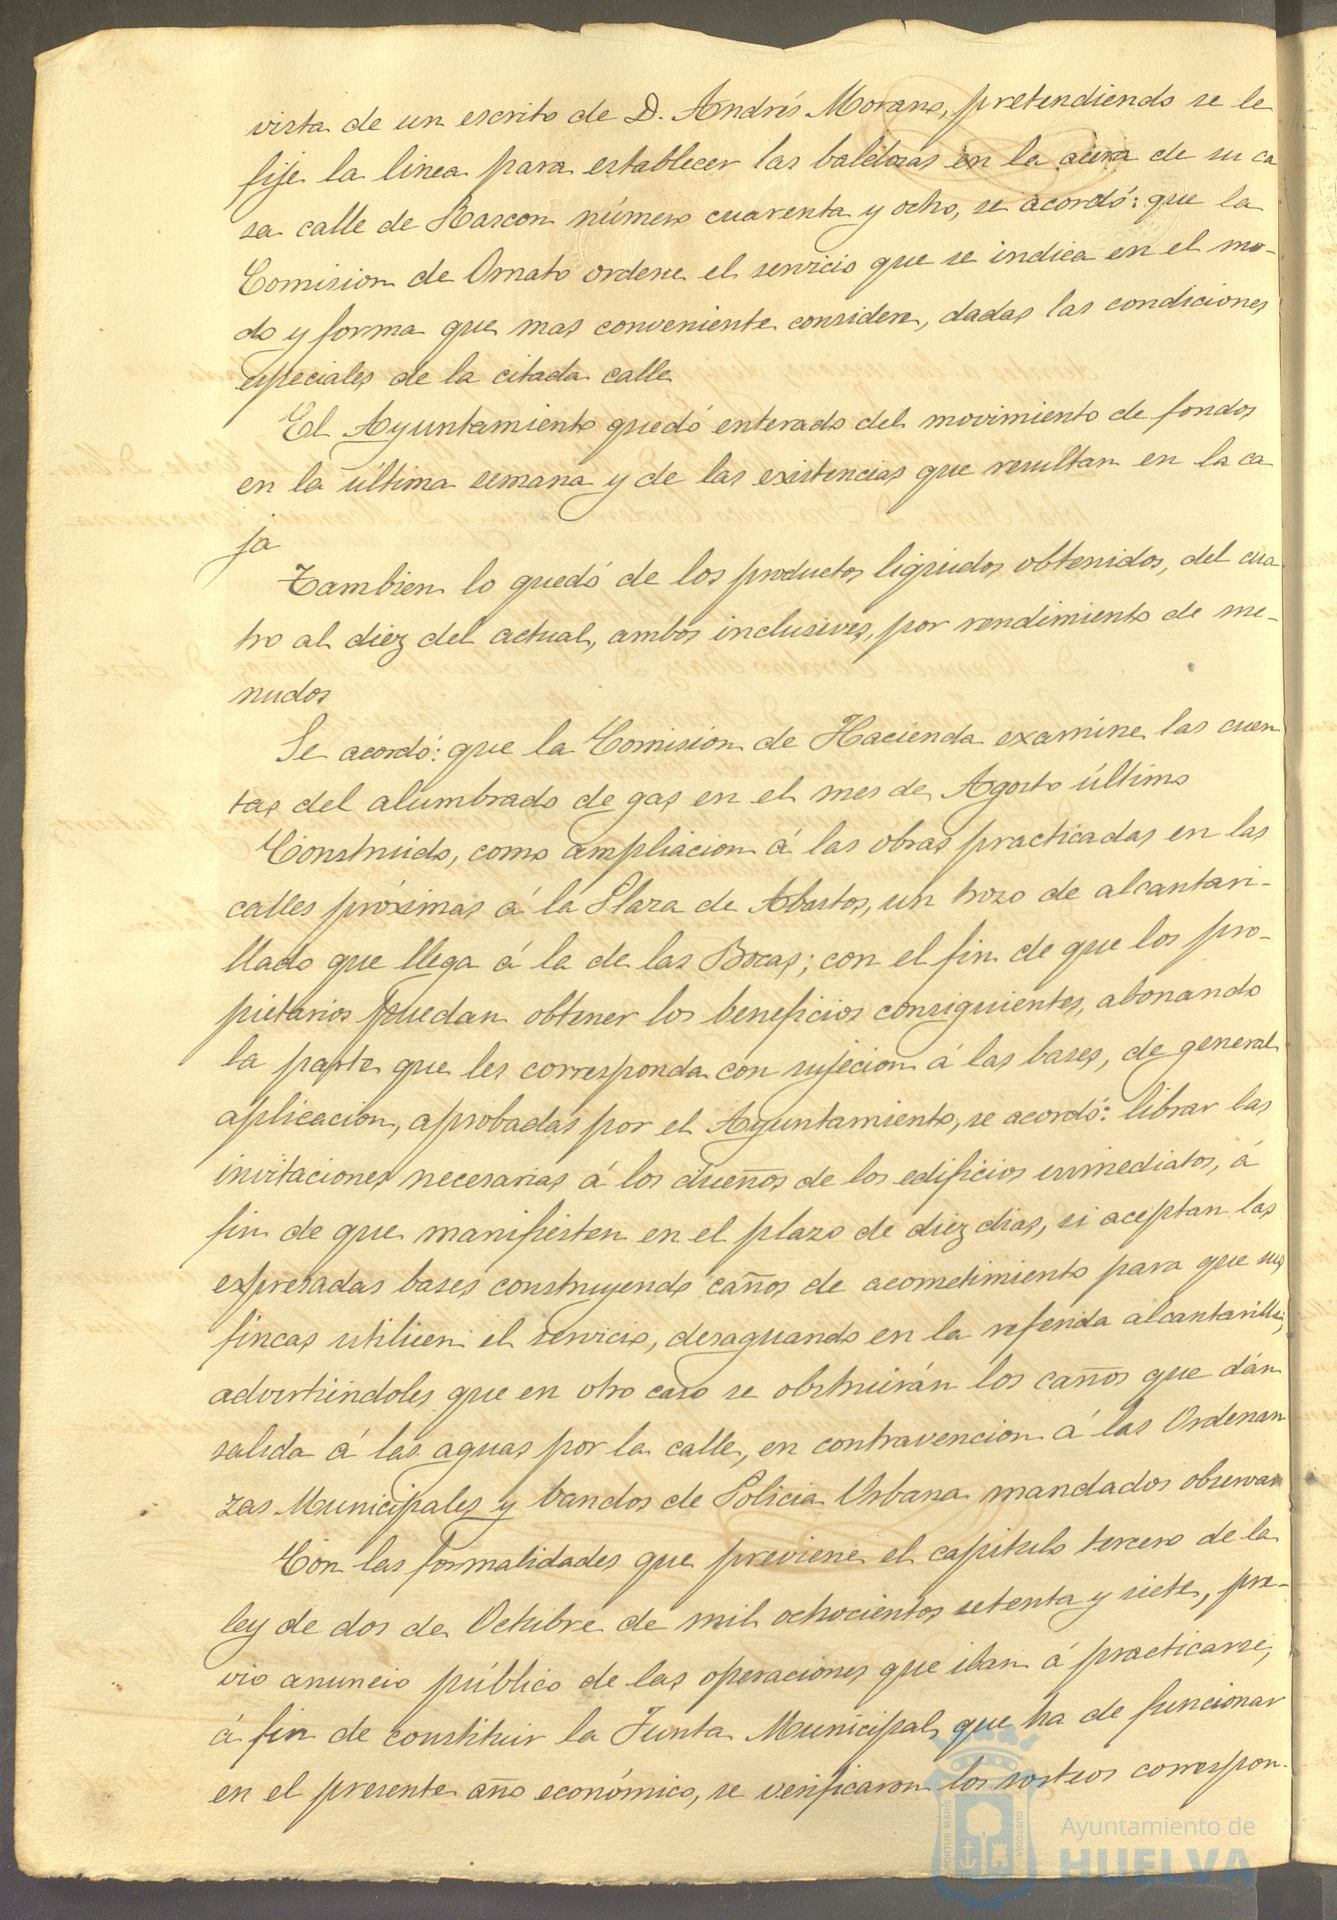 vista de un escrito de D. Andrés Morano, pretendiendo se le
fije la linea para establecer las baldosas en la acera de su ca
sa calle de Rascon número cuarenta y ocho, se acordó: que la
Comision de Ornato ordene el servicio que se indica en el mo-
do y forma que mas conveniente considere, dadas las condiciones
especiales de la citada calle
El Ayuntamiento quedó enterado del movimiento de fondos
en la última semana y de las existencias que resultan en la ca
ja
Tambien lo quedó de los productos liquidos obtenidos, del cua
tro al diez del actual, ambos inclusives, por rendimiento de me-
nudos
Se acordó: que la Comision de Hacienda examine las cuen
tas del alumbrado de gas en el mes de Agosto último
Construido, como ampliacion á las obras practicadas en las
calles próximas á la Plaza de Abastos, un trozo de alcantari-
llado que llega á la de las Bocas; con el fin de que los pro-
pietarios puedan obtener los beneficios consiguientes, abonando
la parte que les corresponda con sujecion á las bases, de general
aplicacion, aprobadas por el Ayuntamiento, se acordó: librar las
invitaciones necesarias á los dueños de los edificios inmediatos, á
fin de que manifiesten en el plazo de diez dias, si aceptan las
expresadas bases construyendo caños de acometimiento para que sus
fincas utilicen el servicio, desaguando en la referida alcantarilla;
advirtiéndoles que en otro caso se obstruirán los caños que dán
salida á las aguas por la calle, en contravencion á las Ordenan
zas Municipales y bandos de Policia Urbana mandados observar
Con las formalidades que previene el capitulo tercero de la
ley de dos de Octubre de mil ochocientos setenta y siete, pre-
vio anuncio público de las operaciones que iban á practicarse,
á fin de constituir la Junta Municipal, que ha de funcionar
en el presente año económico, se verificaron los sorteos correspon-
Ayuntamiento de
HUELVA